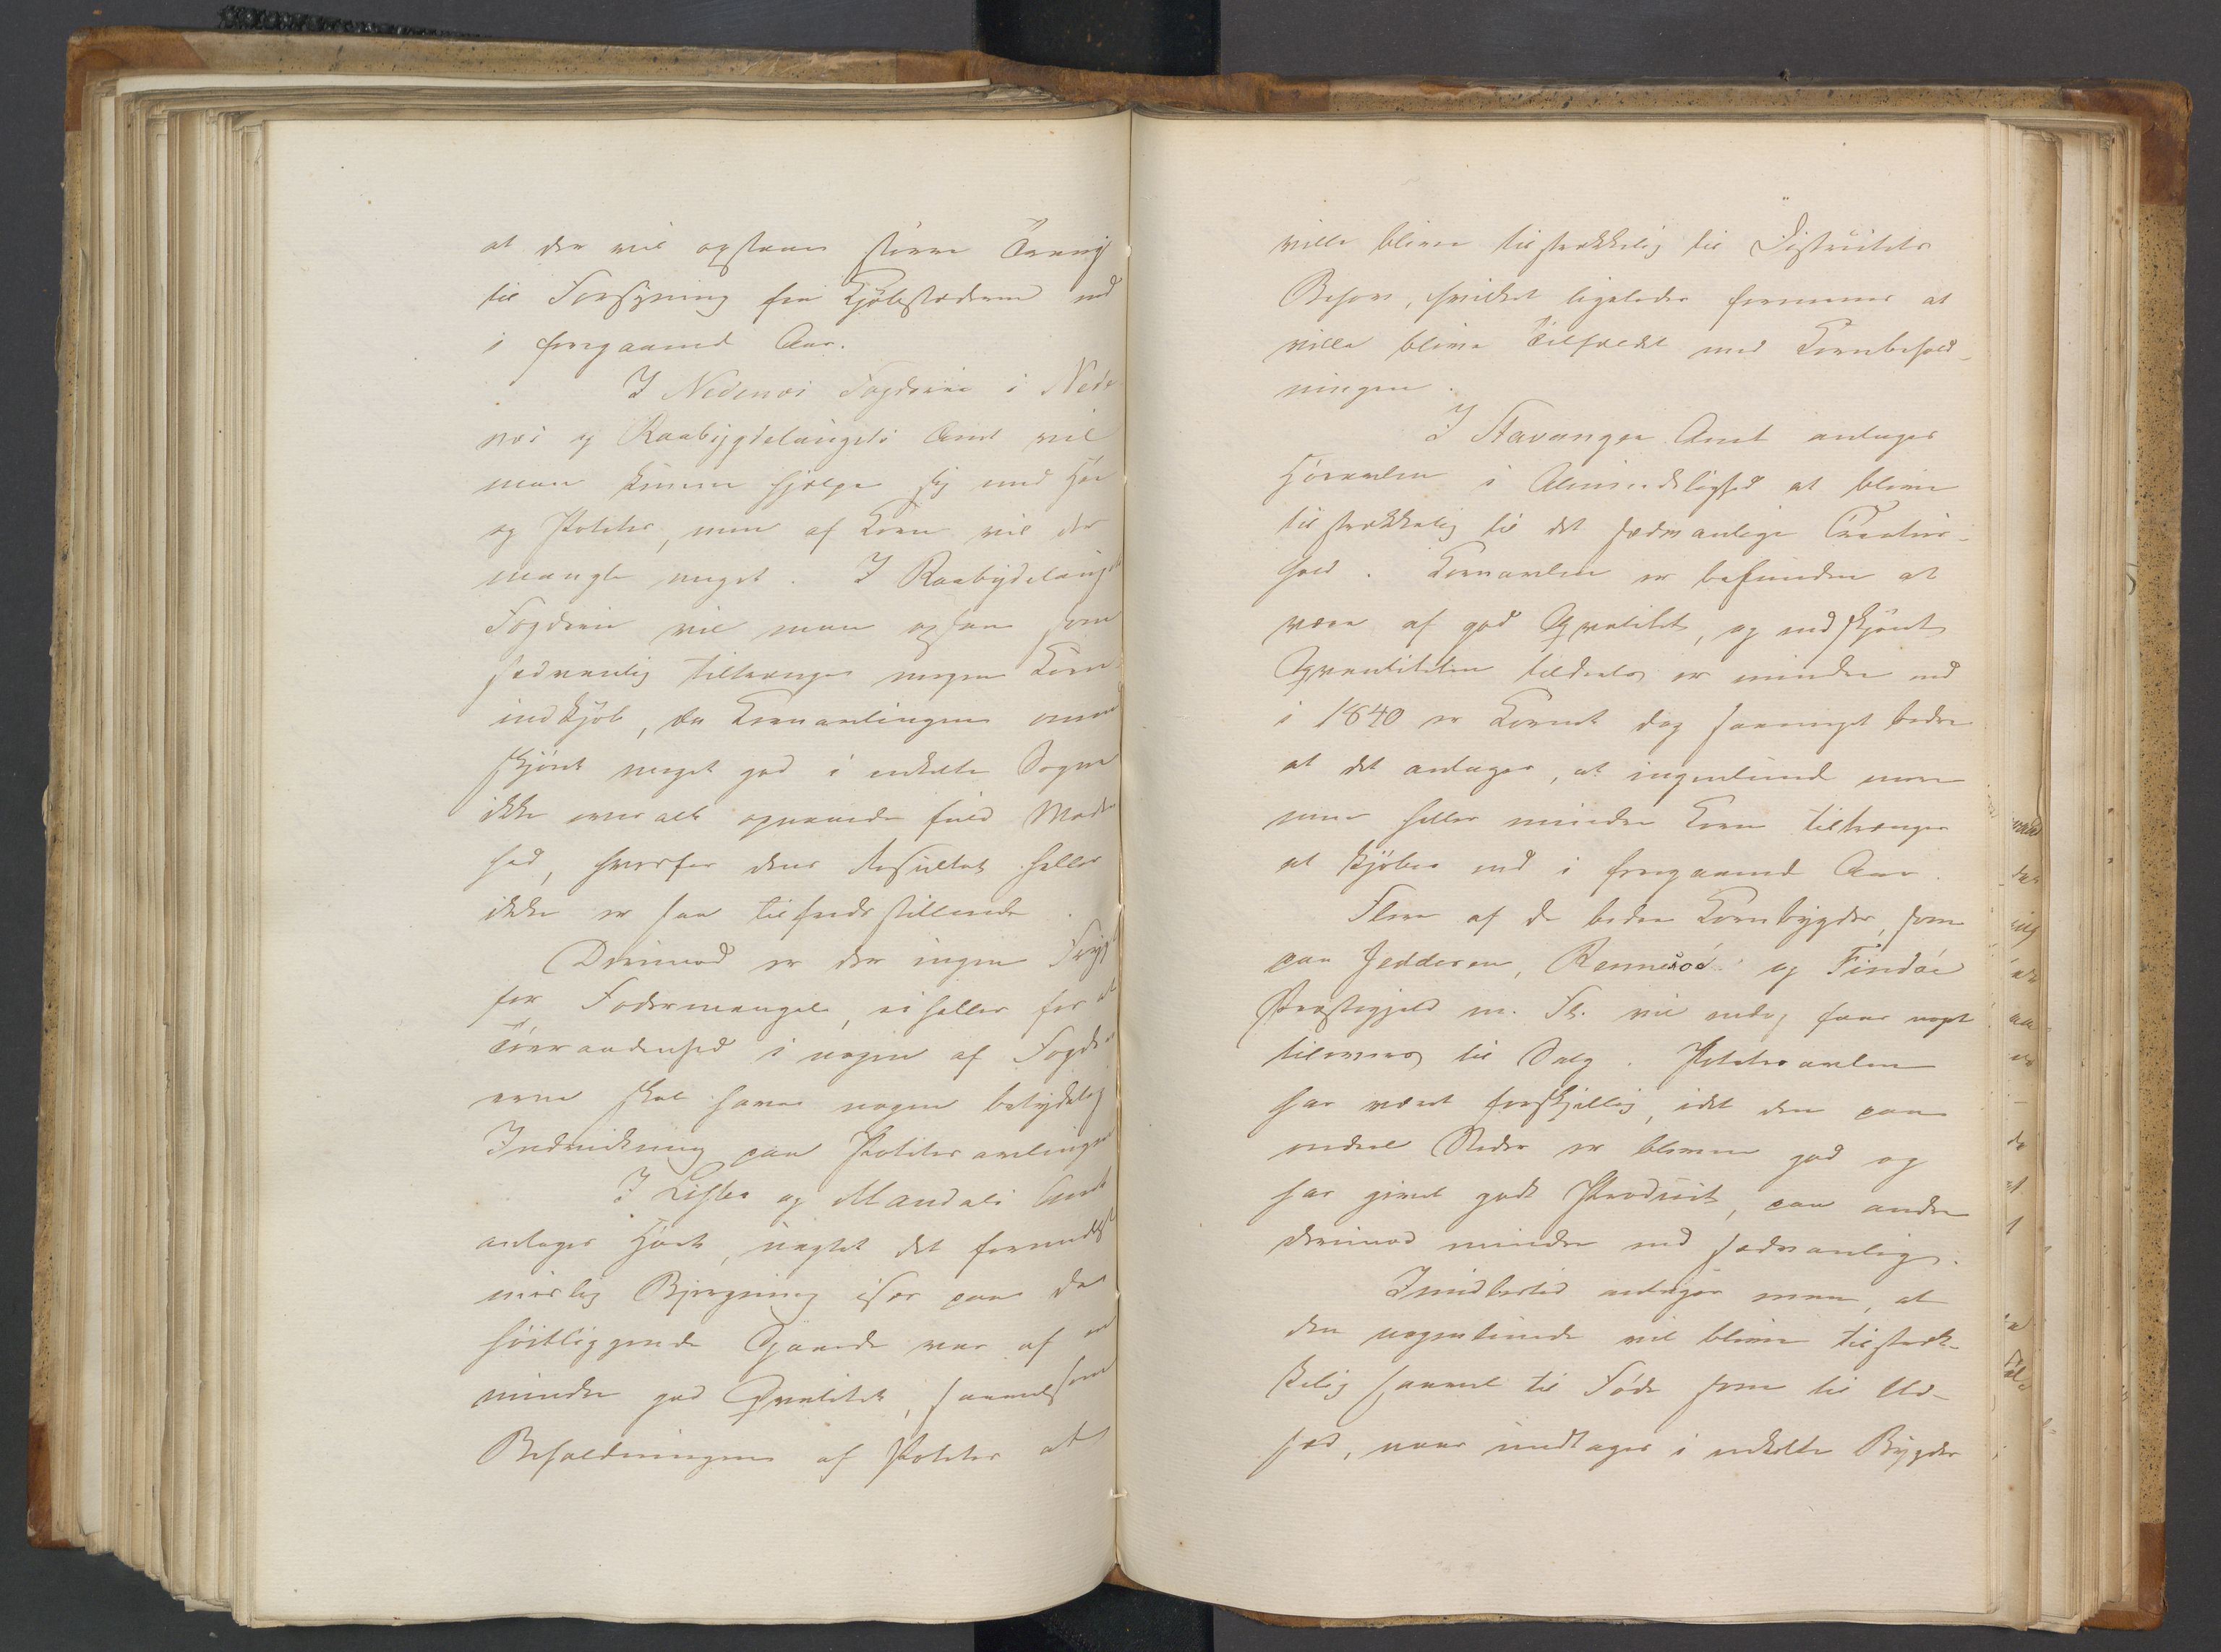 at der vil opstaae større Trang
til Forsyning fra Kjøbstæderne end
i foregaaende Aar.
I Nedenæs Fogderie i Nede
næs og Raabygdelaugets Amt vil
man kunne hjelpe sig med Høe
og Poteter, men af Korn vil der
mangle noget. I Raabydelaugets
Fogderie vil man ogsaa som
sædvanlig tiltrænge nogen Korn
indkjøb, da Kornavlingen om end
skjønt meget god i enkelte Sogne
ikke overalt opnaaede fuld Moden
hed, hvorfor dens Resultat heller
ikke er saa tilfredsstillende.
Derimod er der ingen Frygt
for Fodermangel, ei heller for at
Tørraadenhed i nogen af Fogde
rierne skal have nogen betydelig
Indvirkning paa Potetesavlingen
I Lister og Mandals Amt
antages Høet, uagtet det formedelst
misslig Bjergning især paa de
høitliggende Gaarde var af
mindre god Qvalitet, saavelsom
Beholdningen af Poteter at
ville blive tilstrækkelig til Districtets
Behov, hvilket ligeledes formenes at
ville blive Tilfældet med Kornbehold-
ningen.
I Stavanger Amt antages
Høeavlen i Almindelighed at blive
tilstrækkelig til det sædvanlige Creatur-
hold. Kornavlen er befunden at
være af god Qvalitet, og endskjønt
Qvantiteten tildeels er mindre end
i 1840 er Kornet dog saameget bedre
at det antages, at ingenlunde mere
men heller mindre Korn tiltrænges
at kjøbes end i foregaaende Aar.
Flere af de bedre Kornbygder, som
paa Jedderen, Rennesøe og Findøe
Præstegjeld m. Fl. vil endog faae noget
tilovers til Salg. Potetesavlen
har været forskjellig, idet den paa
endeel Steder er bleven god og
har givet godt Product, paa andre
derimod mindre end sædvanlig.
Imidlertid antager man, at
den nogenlunde vil blive tilstræk-
kelig saavel til Føde som til Ud-
sæd, naar undtages i enkelte Bygder